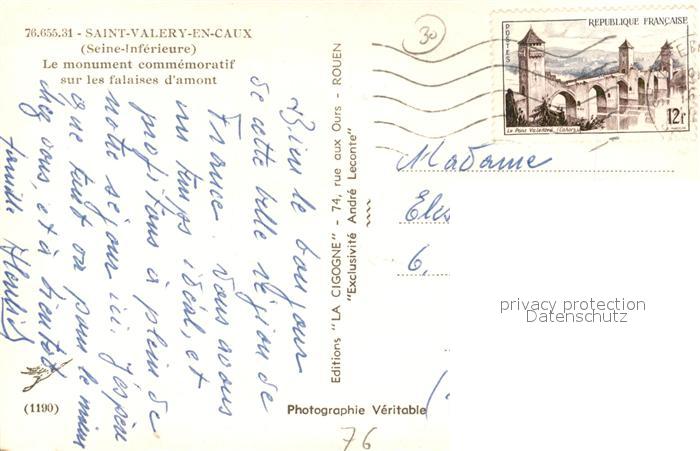 76.655.31 - SAINT-VALERY-EN-CAUX
(Seine-Inférieure)
Le monument commémoratif
sur les falaises d'amont
30
REPUBLIQUE FRANÇAISE
POSTES
Le Pont Valentré (Cahors)
12F
Bien le bonjour
de cette belle région de
France. Nous avons
un temps idéal, et
profitons à plein de
notre séjour ici. J'espère
que tout va pour le mieux
chez vous, et à bientôt
famille
Editions "LA CIGOGNE" - 74, rue aux Ours - ROUEN
"Exclusivité André Leconte"
Madame
6,
privacy protection
Datenschutz
(1190)
Photographie Véritable
76